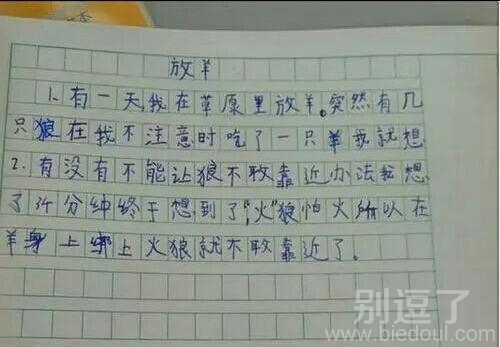 放羊
1.有一天,我在草原里放羊。突然有几
只狼在我不注意时吃了一只羊我就想
2.有没有不能让狼不敢靠近办法我想
了半分钟终于想到了,"火"狼怕火所以在
羊身上绑上火狼就不敢靠近了。
别逗了
www.biedoul.com